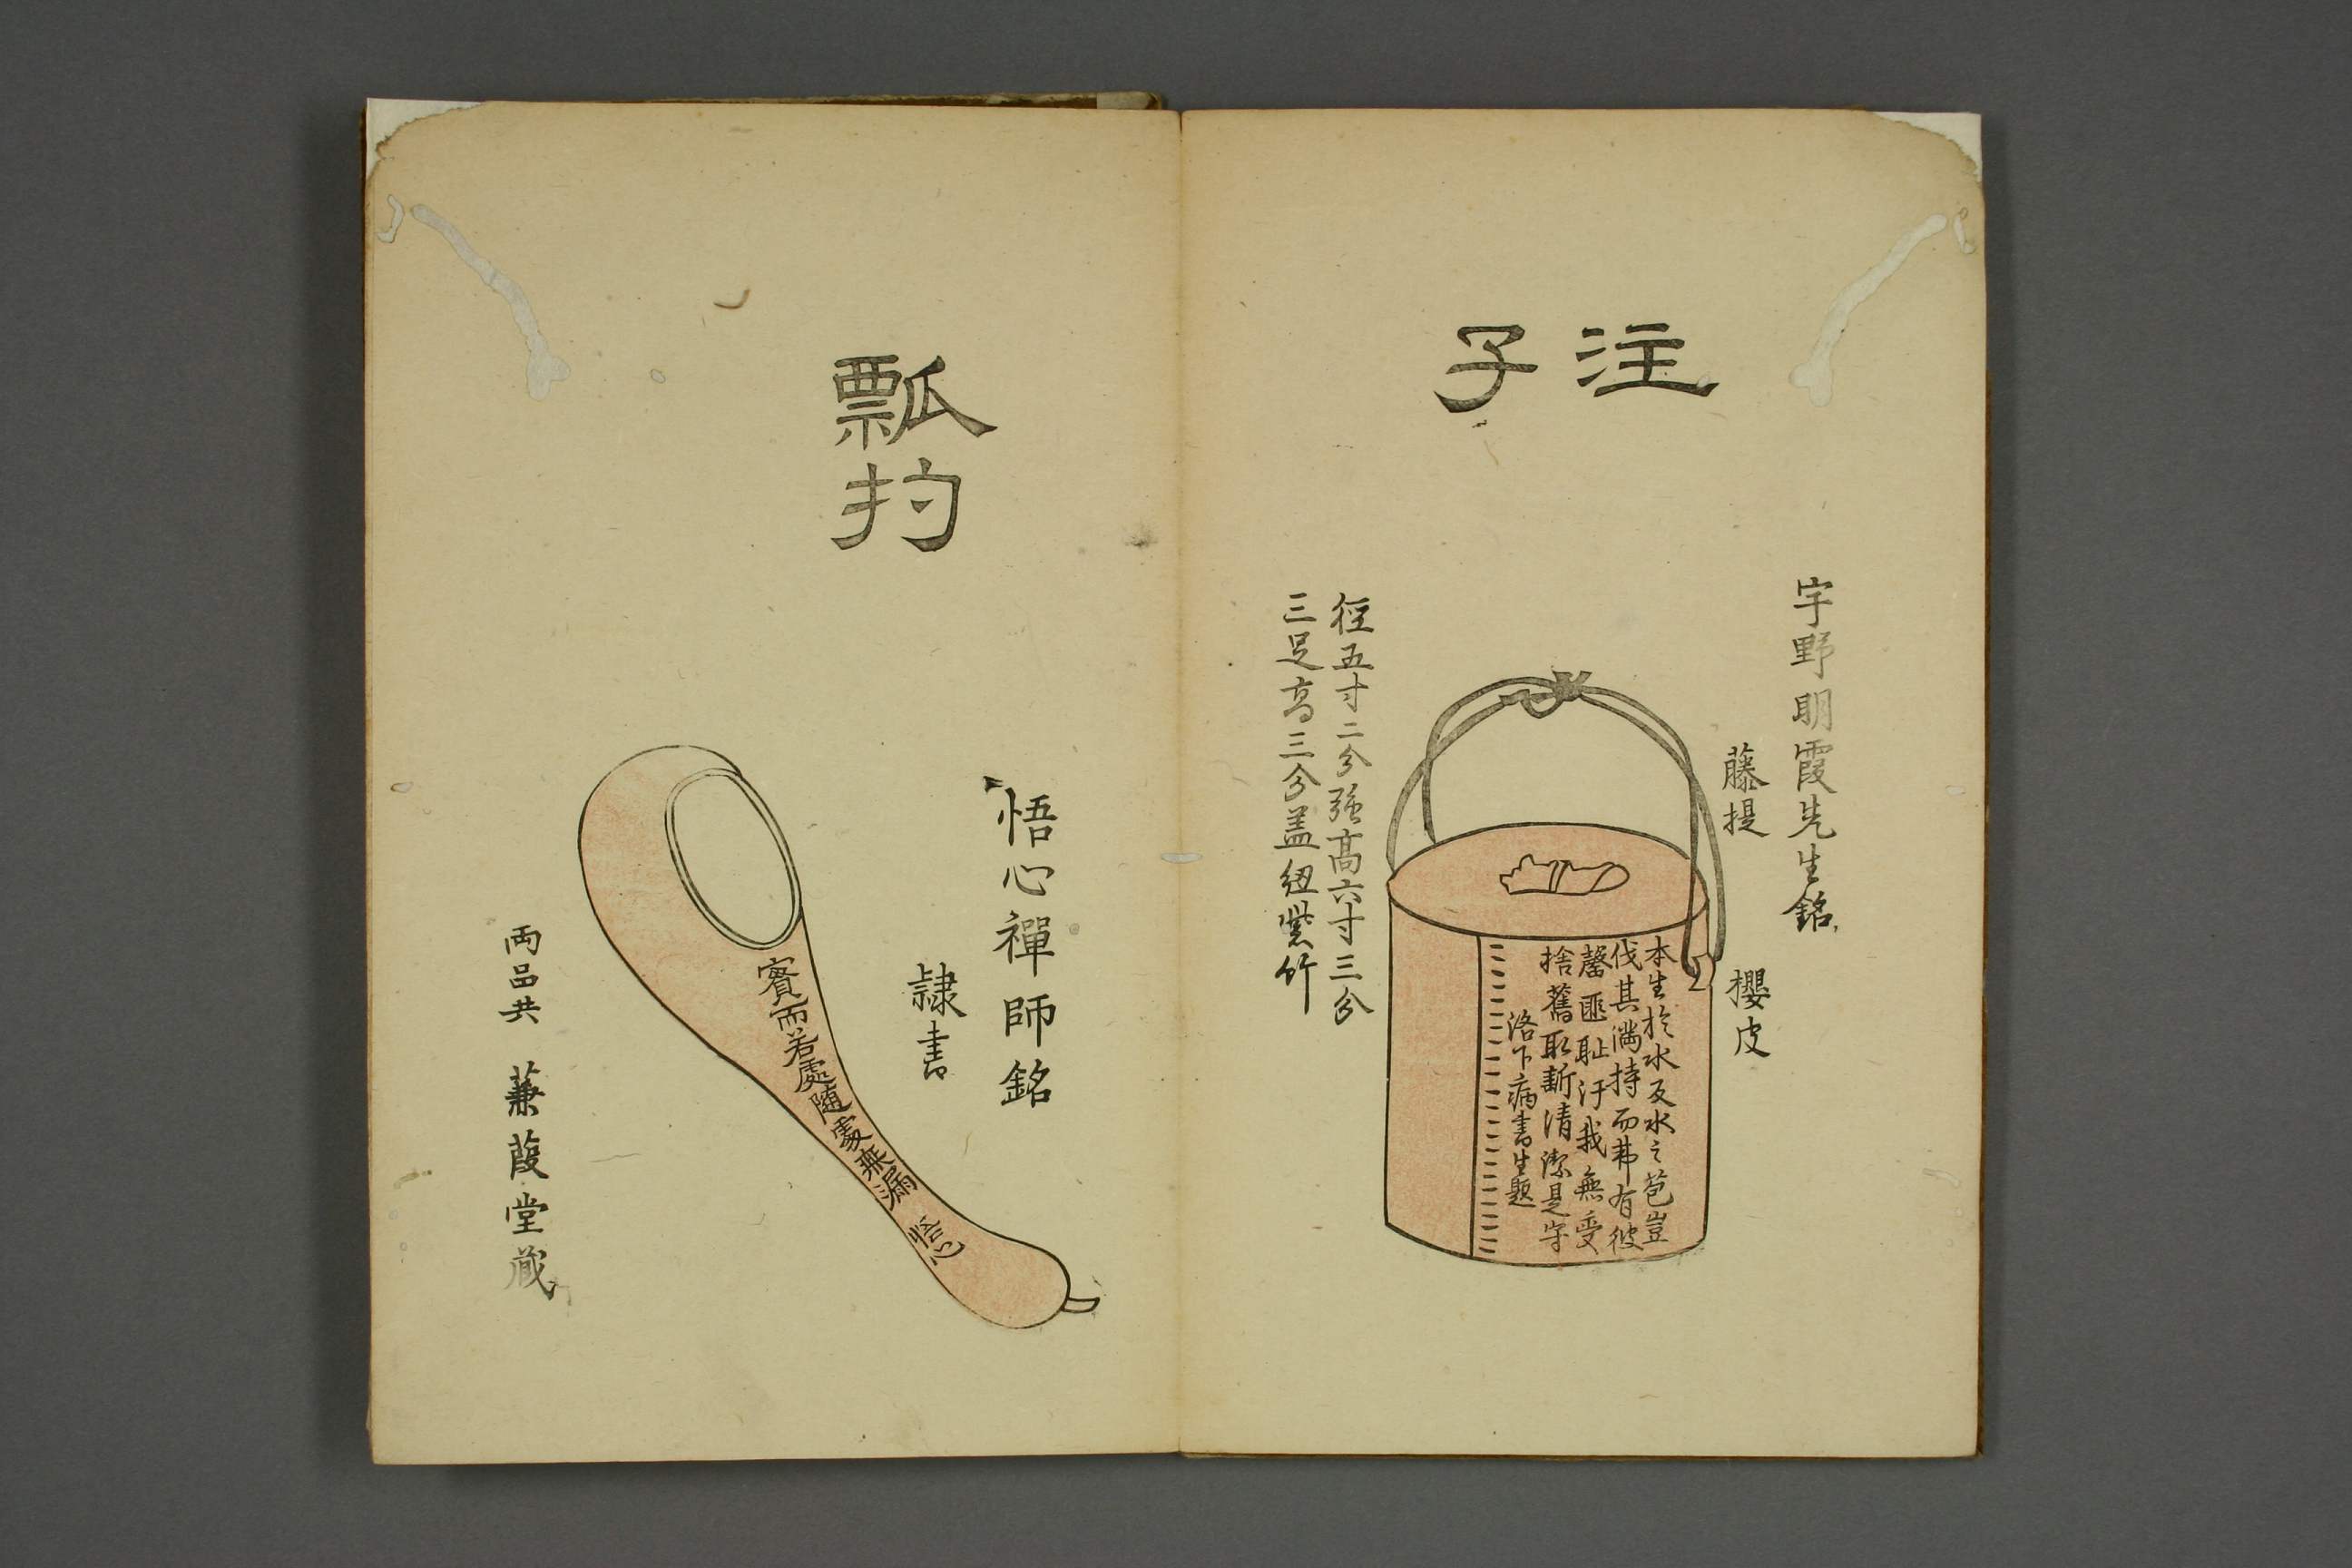 注子
宇野明霞先生銘
藤提
櫻皮
本生於水反水之苞豈
伐其滿持而弗有彼
罄匪恥汙我無受
捨舊取新清潔是守
洛下病書生題
徑五寸二分強高六寸三分
三足高三分盖紐紫竹
瓢扚
悟心禪師銘
隷書
賓而若處隨處無漏 悟心
両品共 蒹葭堂藏